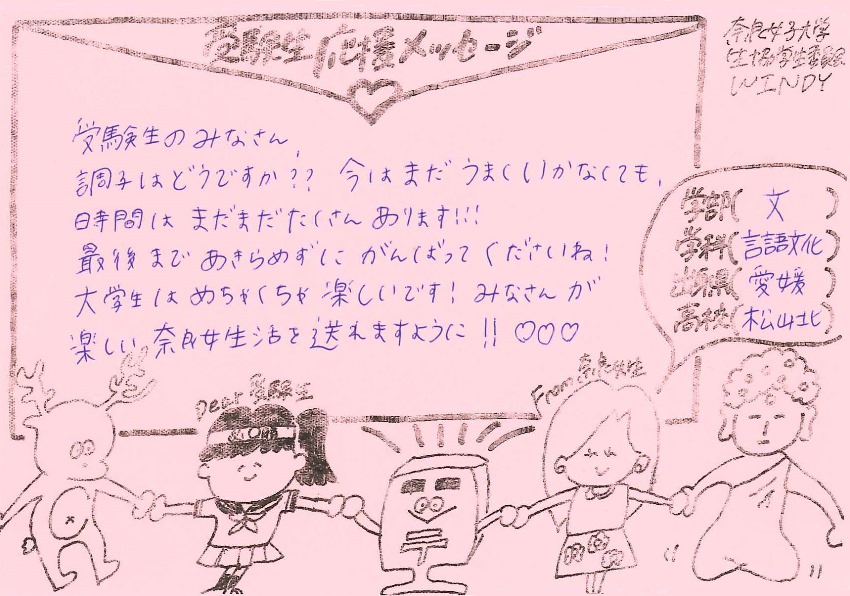 受験生応援メッセージ
奈良女子大学
生協学生委員会
WINDY
受験生のみなさん、
調子はどうですか?? 今はまだ うまくいかなくても、
時間は まだまだたくさん あります!!!
最後まで あきらめずに がんばって くださいね!
大学生は めちゃくちゃ 楽しいです! みなさんが
楽しい 奈良女生活を 送れますように!! ♡♡♡
学部(文)
学科(言語文化)
出身県(愛媛)
高校(松山北)
Dear 受験生
From 奈良女生